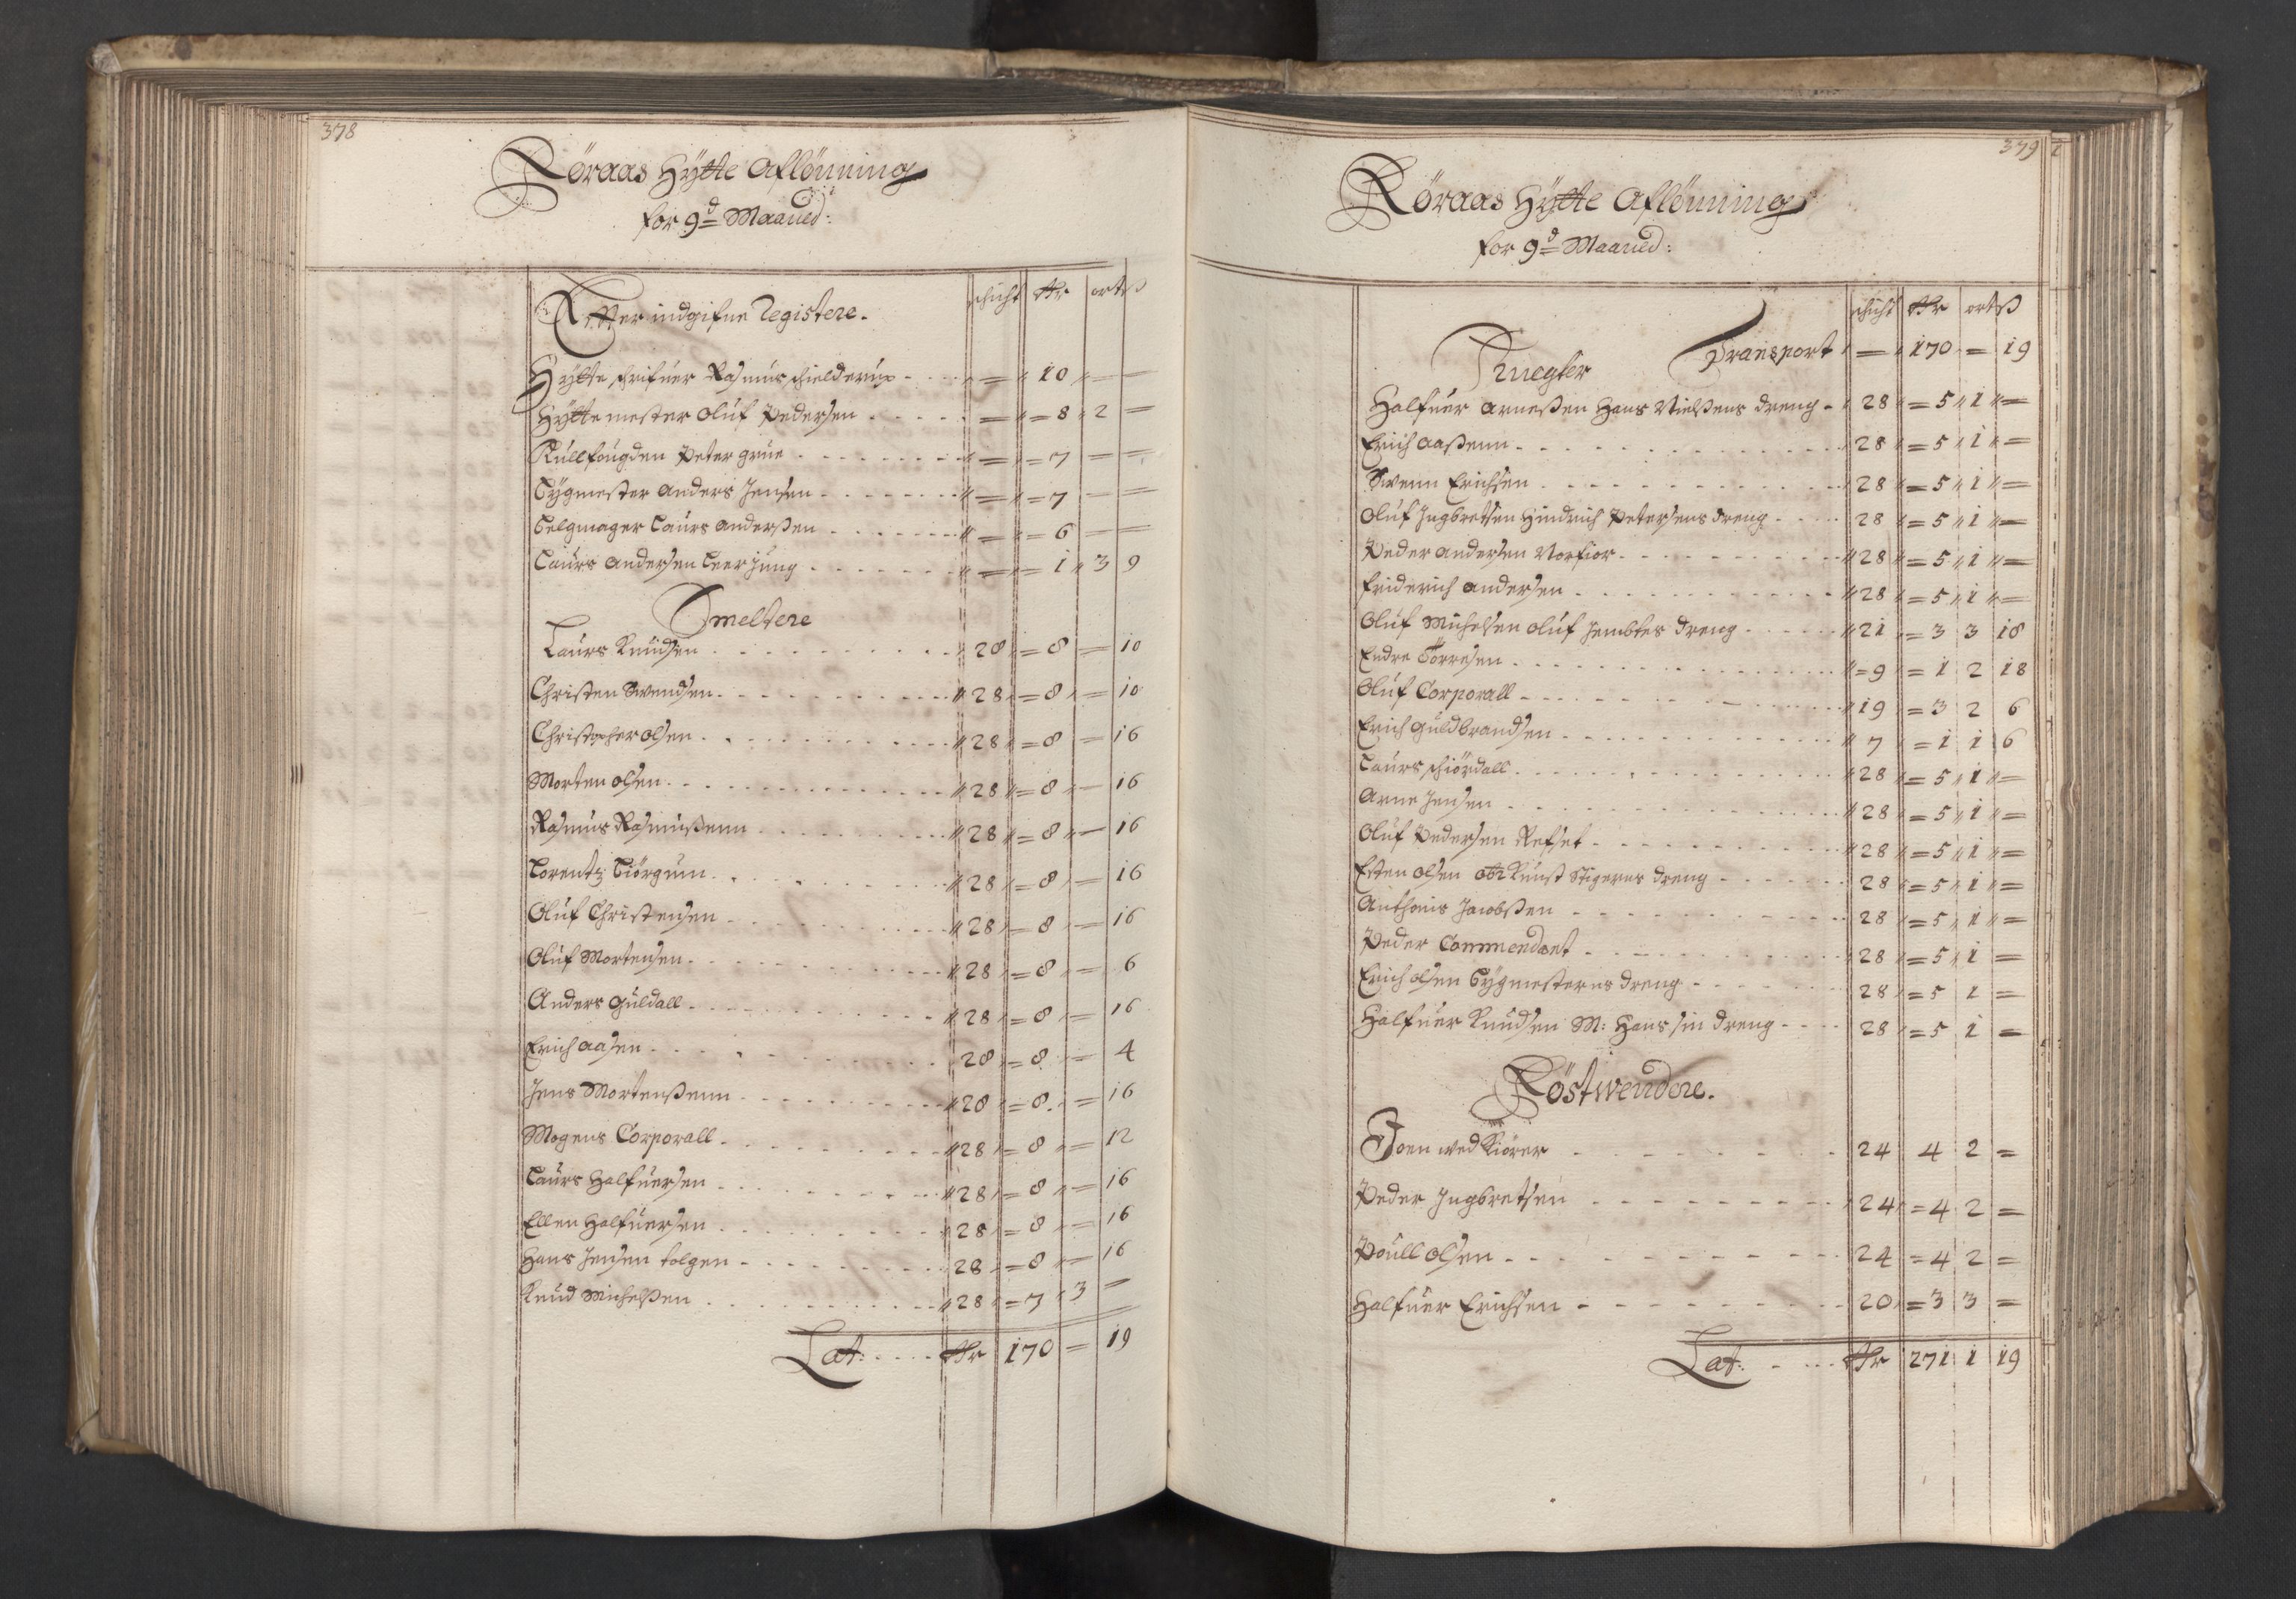 378
Röraas Hÿtte Aflönning
for 9d Maaned:
Efter indgifne Registere. schicht Rdr ort ß
Hÿtte schrifuer Rasmus schielderup - = 10 - -
Hÿtte mester Oluf Pedersen = = 8 2 -
Kullfougden Peter grüe = = 7 - -
Tÿgmester Anders Jensen = = 7 - -
Belgmager Laurs Anderßen = = 6 - -
Laurs Andersen Leerjung = = 1 3 9
Smeltere
Laurs Knudsen 28 = 8 = 10
Christen Swendsen 28 = 8 = 10
Christopher Olsen 28 = 8 = 16
Morten Olsen 28 = 8 - 16
Rasmus Rasmußenn 28 = 8 - 16
Lorentz Tiörgum 28 = 8 - 16
Oluf Christensen 28 = 8 - 16
Oluf Mortensen 28 = 8 - 6
Anders Guldall 28 = 8 = 16
Erich Aasen 28 = 8 = 4
Jens Mortenßenn 28 = 8 = 16
Mogens Corporall 28 = 8 = 12
Laurs Halfuersen 28 = 8 = 16
Ellen Halfuersen 28 = 8 = 16
Hans Jensen tolgen 28 = 8 - 16
Knud Michelßen 28 = 7 3 =
Lat: Rdr 170 = 19
379
Röraas Hÿtte Aflönning
for 9d Maaned:
schicht Rdr ort ß
Transport = 170 = 19
Knegter
Halfuer Arneßen Hans Nielßens dreng 28 = 5 1 =
Erich Aaßenn 28 = 5 1 =
Swenn Erichsen 28 = 5 1 =
Oluf Ingbretsen Hindrich Petersens dreng 28 = 5 1 =
Peder Andersen Norfior 28 = 5 1 =
Friderich Andersen 28 = 5 1 =
Oluf Michelsen Oluf Jembtes dreng 21 = 3 3 18
Endre Torresen = 9 = 1 2 18
Oluf Corporall 19 = 3 2 6
Erich Guldbrandsen 7 = 1 1 6
Laurs schiördall 28 = 5 1 =
Arne Jensen 28 = 5 1 =
Oluf Pedersen Refset 28 = 5 1 =
Esten Olsen Kunst Stigerns dreng 28 = 5 1 =
Anthonis Jacobßen 28 = 5 1 =
Peder Commendant 28 = 5 1 =
Erich Olsen Tÿgmesterns dreng 28 = 5 1 =
Halfuer Knudsen M: Hans sin dreng 28 = 5 1 =
Röstwendere.
Joen wed Kiörer 24 4 2 =
Peder Ingbretsen 24 = 4 2 =
Poull Olsen 24 = 4 2 =
Halfuer Erichsen 20 = 3 3 =
Lat: Rdr 271 1 19